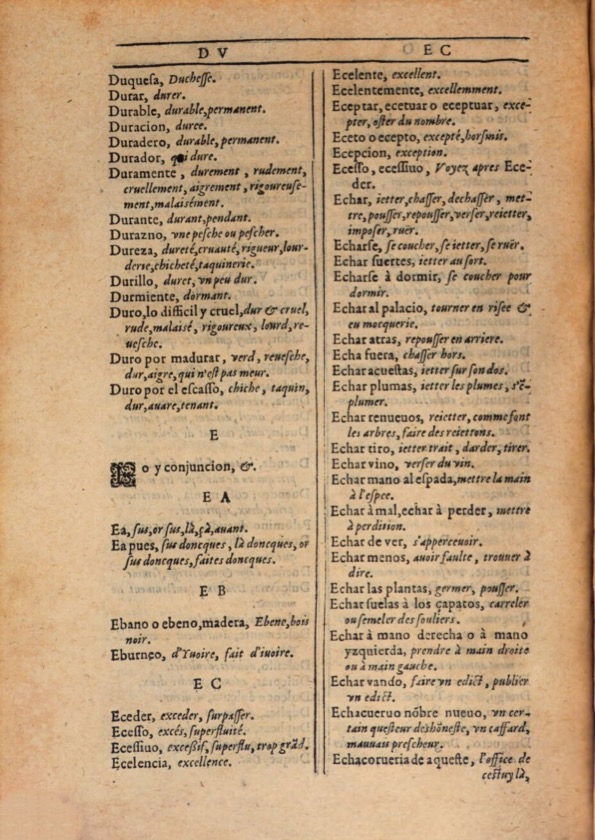 DV
Duquesa, Duchesse.
Durar, durer.
Durable, durable, permanent.
Duracion, duree.
Duradero, durable, permanent.
Durador, qui dure.
Duramente, durement, rudement,
cruellement, aigrement, rigoureuse-
ment, malaisément.
Durante, durant, pendant.
Durazno, vne pesche ou pescher.
Dureza, dureté, cruauté, rigueur, lour-
derie, chicheté, taquinerie.
Durillo, duret, vn peu dur.
Durmiente, dormant.
Duro, lo difficil y cruel, dur & cruel,
rude, malaisé, rigoureux, lourd, re-
uesche.
Duro por madurar, verd, reuesche,
dur, aigre, qui n'est pas meur.
Duro por el escasso, chiche, taquin,
dur, auare, tenant.
E
E o y conjuncion, &.
EA
Ea, sus, or sus, là, çà, auant.
Ea pues, sus doncques, là doncques, or
sus doncques, faites doncques.
EB
Ebano o ebeno, madera, Ebene, bois
noir.
Eburneo, d'Yuoire, fait d'iuoire.
EC
Eceder, exceder, surpasser.
Ecesso, excés, superfluité.
Ecessiuo, excessif, superflu, trop grād.
Ecelencia, excellence.
EC
Ecelente, excellent.
Ecelentemente, excellemment.
Eceptar, ecetuar o eceptuar, exce-
pter, oster du nombre.
Eceto o ecepto, excepté, horsmis.
Ecepcion, exception.
Ecesso, ecessiuo, Voyez apres Ece-
der.
Echar, ietter, chasser, dechasser, met-
tre, pousser, repousser, verser, reietter,
imposer, ruër.
Echarse, se coucher, se ietter, se ruër.
Echar suertes, ietter au sort.
Echarse à dormir, se coucher pour
dormir.
Echar al palacio, tourner en risee &
eu mocquerie.
Echar atras, repousser en arriere.
Echa fuera, chasser hors.
Echar acuestas, ietter sur son dos.
Echar plumas, ietter les plumes, s'ē-
plumer.
Echar renueuos, reietter, comme font
les arbres, faire des reiettons.
Echar tiro, ietter trait, darder, tirer.
Echar vino, verser du vin.
Echar mano al espada, mettre la main
à l'espee.
Echar à mal, echar à perder, mettre
à perdition.
Echar de ver, s'apperceuoir.
Echar menos, auoir faulte, trouuer à
dire.
Echar las plantas, germer, pousser.
Echar suelas à los çapatos, carreler
ou semeler des souliers.
Echar à mano derecha o à mano
yzquierda, prendre à main droite
ou à main gauche.
Echar vando, faire vn edict, publier
vn edict.
Echacueruo nōbre nueuo, vn cer-
tain questeur deshōneste, vn caffard,
mauuais prescheur.
Echacorueria de aqueste, l'office de
cestuy là,